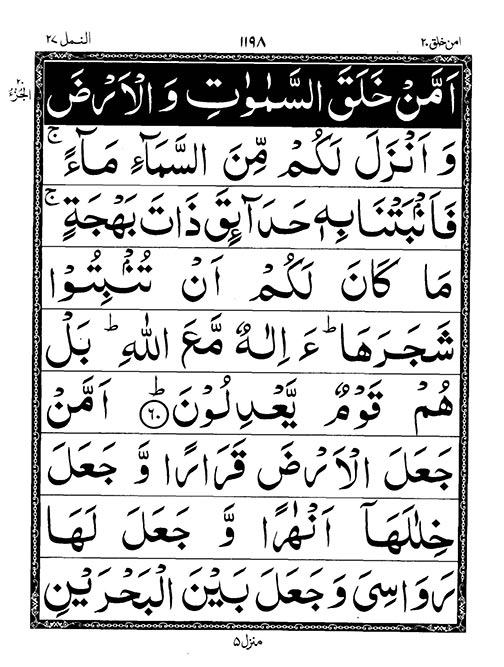 امن خلق ٢٠ ١١٩٨ النمل ٢٧
٢٠ الجزء
اَمَّنْ خَلَقَ السَّمٰوٰتِ وَ الْاَرْضَ
وَ اَنْزَلَ لَكُمْ مِّنَ السَّمَآءِ مَآءً ۚ
فَاَنْۢبَتْنَا بِهٖ حَدَآئِقَ ذَاتَ بَهْجَةٍ ۚ
مَا كَانَ لَكُمْ اَنْ تُنْۢبِتُوْا
شَجَرَهَا ؕ ءَ اِلٰهٌ مَّعَ اللّٰهِ ؕ بَلْ
هُمْ قَوْمٌ يَّعْدِلُوْنَ ؕ﴿٦٠﴾ اَمَّنْ
جَعَلَ الْاَرْضَ قَرَارًا وَّ جَعَلَ
خِلٰلَهَاۤ اَنْهٰرًا وَّ جَعَلَ لَهَا
رَوَاسِيَ وَ جَعَلَ بَيْنَ الْبَحْرَيْنِ
منزل ٥